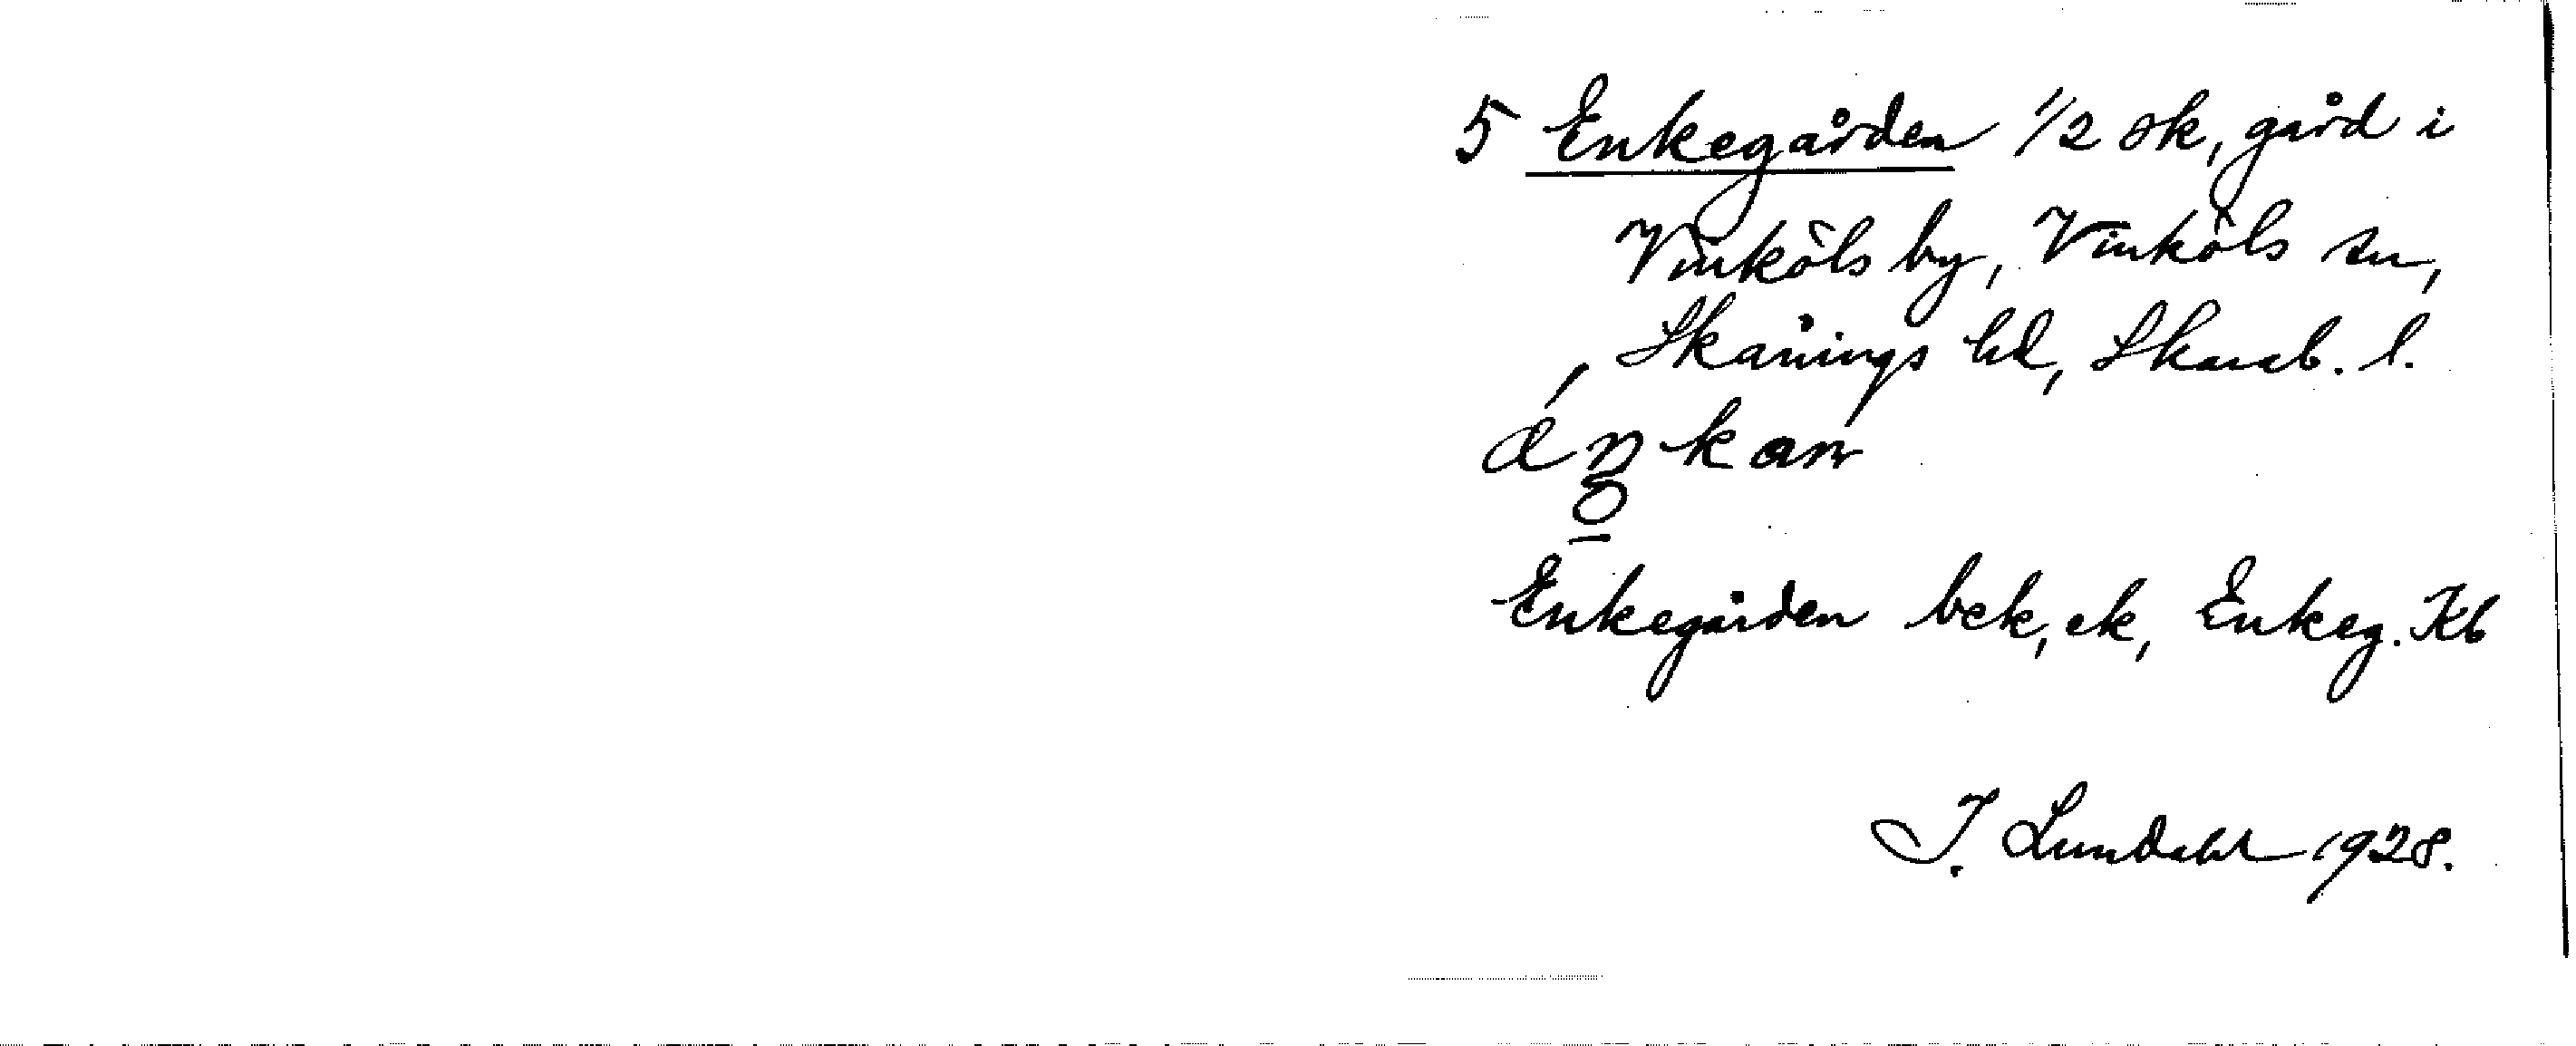 5 Enkegården 1/2 sk, gård i
Vinköls by, Vinköls sn,
Skånings hd, Skarab. l.
Enkegården bek, ek, Enkeg. Kb
I. Lundahl 1928.